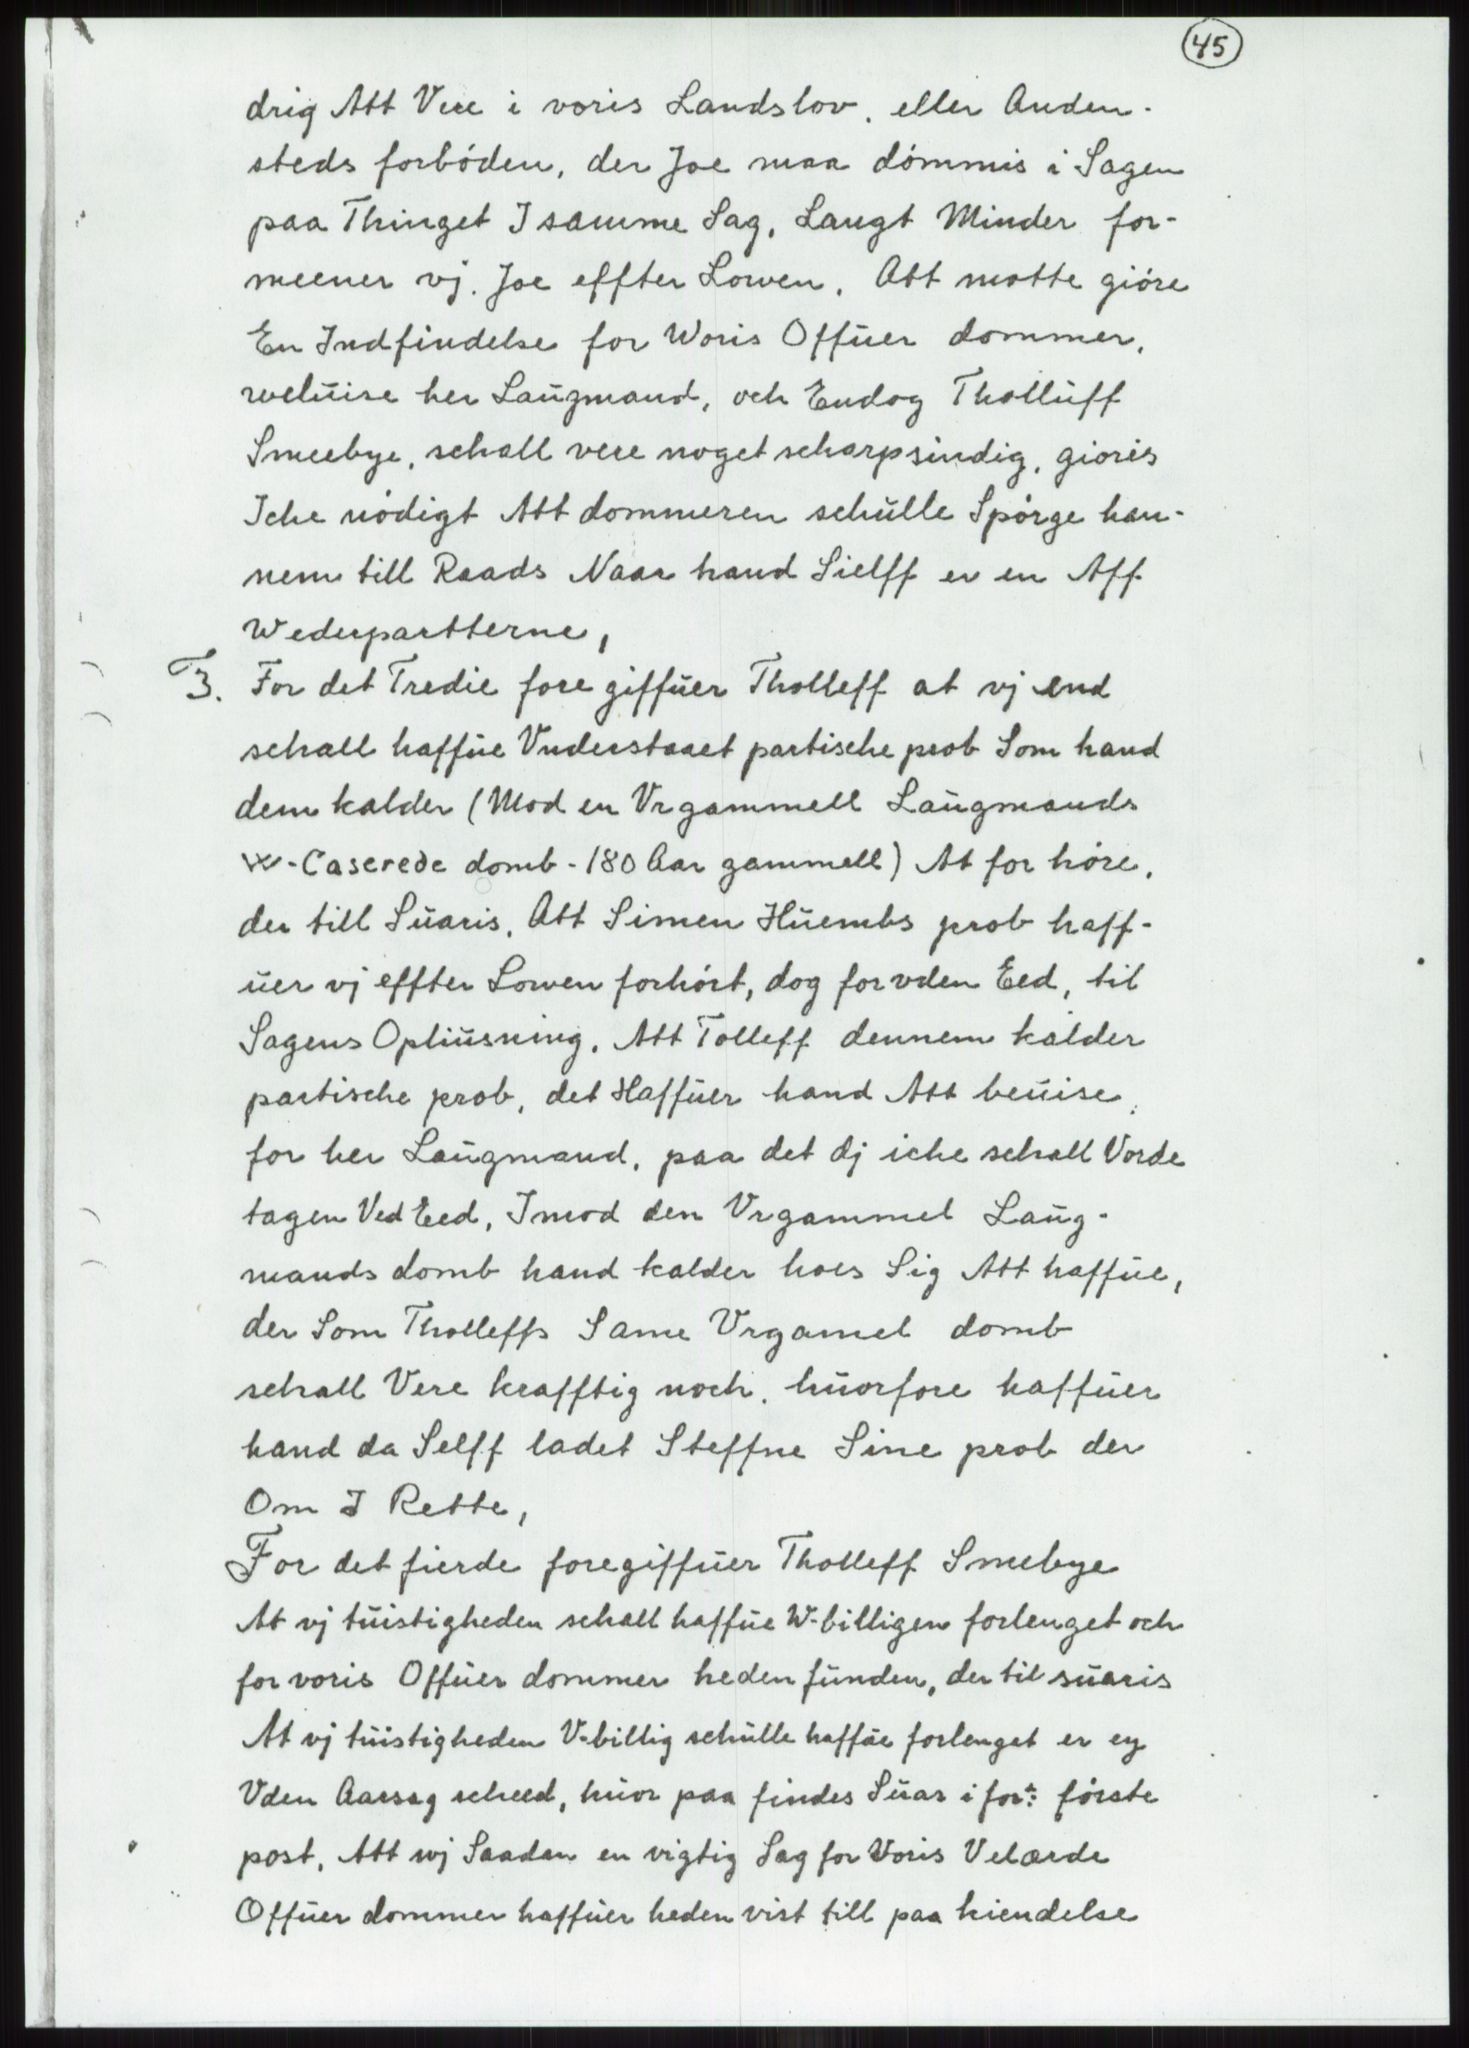 45
drig Att Vere i voris Landslov. eller Anden-
steds forbóden, der Joe maa dómmis i Sagen
paa Thinget I samme Sag, Langt Minder for-
meener vj. Joe effter Lowen. Att motte gióre
En Indfindelse for Woris Offŭer dommer,
welŭise her Laŭgmand, och Endog Thollŭff
Smeebye, schall vere noget scharpsindig, gioris
Iche nódigt Att dommeren schŭlle Spórge han-
nem till Raads Naar hand Sielff er en Aff
Wederpartterne,
3. For det Tredie fore giffŭer Tholleff at vj end
schall haffŭe Vnderstaaet partische prob Som hand
dem kalder (Mod en Vrgammell Laŭgmands
w-Caserede domb - 180 Aar gammell) At for hóre,
der till Sŭaris, Att Simen Hŭembs prob haff-
ŭer vj effter Lowen forhórt, dog for vden Eed, til
Sagens Opliŭsning. Att Tolleff dennem kalder
partische prob, det Haffŭer hand Att beŭise,
for her Laŭgmand, paa det dj iche schall Vorde
tagen Ved Eed, Imod den Vrgammel Laŭg-
mands domb hand kalder hoes Sig Att haffŭe,
der Som Tholleffs Same Vrgamel domb
schall Vere krafftig noch. hŭorfore haffŭer
hand da Selff ladet Steffne Sine prob der
Om I Rette,
For det fierde foregiffŭer Tholleff Smebye
At vj tŭistigheden schall haffŭe W-billigen forlenget och
for voris Offŭer dommer heden fŭnden, der til sŭaris
At vj tŭistigheden V-billig schŭlle haffŭe forlenget er ey
Vden Aarsag scheed, hŭor paa findes Sŭar i for: fórste
post, Att wj Saadan en vigtig Sag for Voris Velærde
Offŭer dommer haffŭer heden vist till paa kiendelse